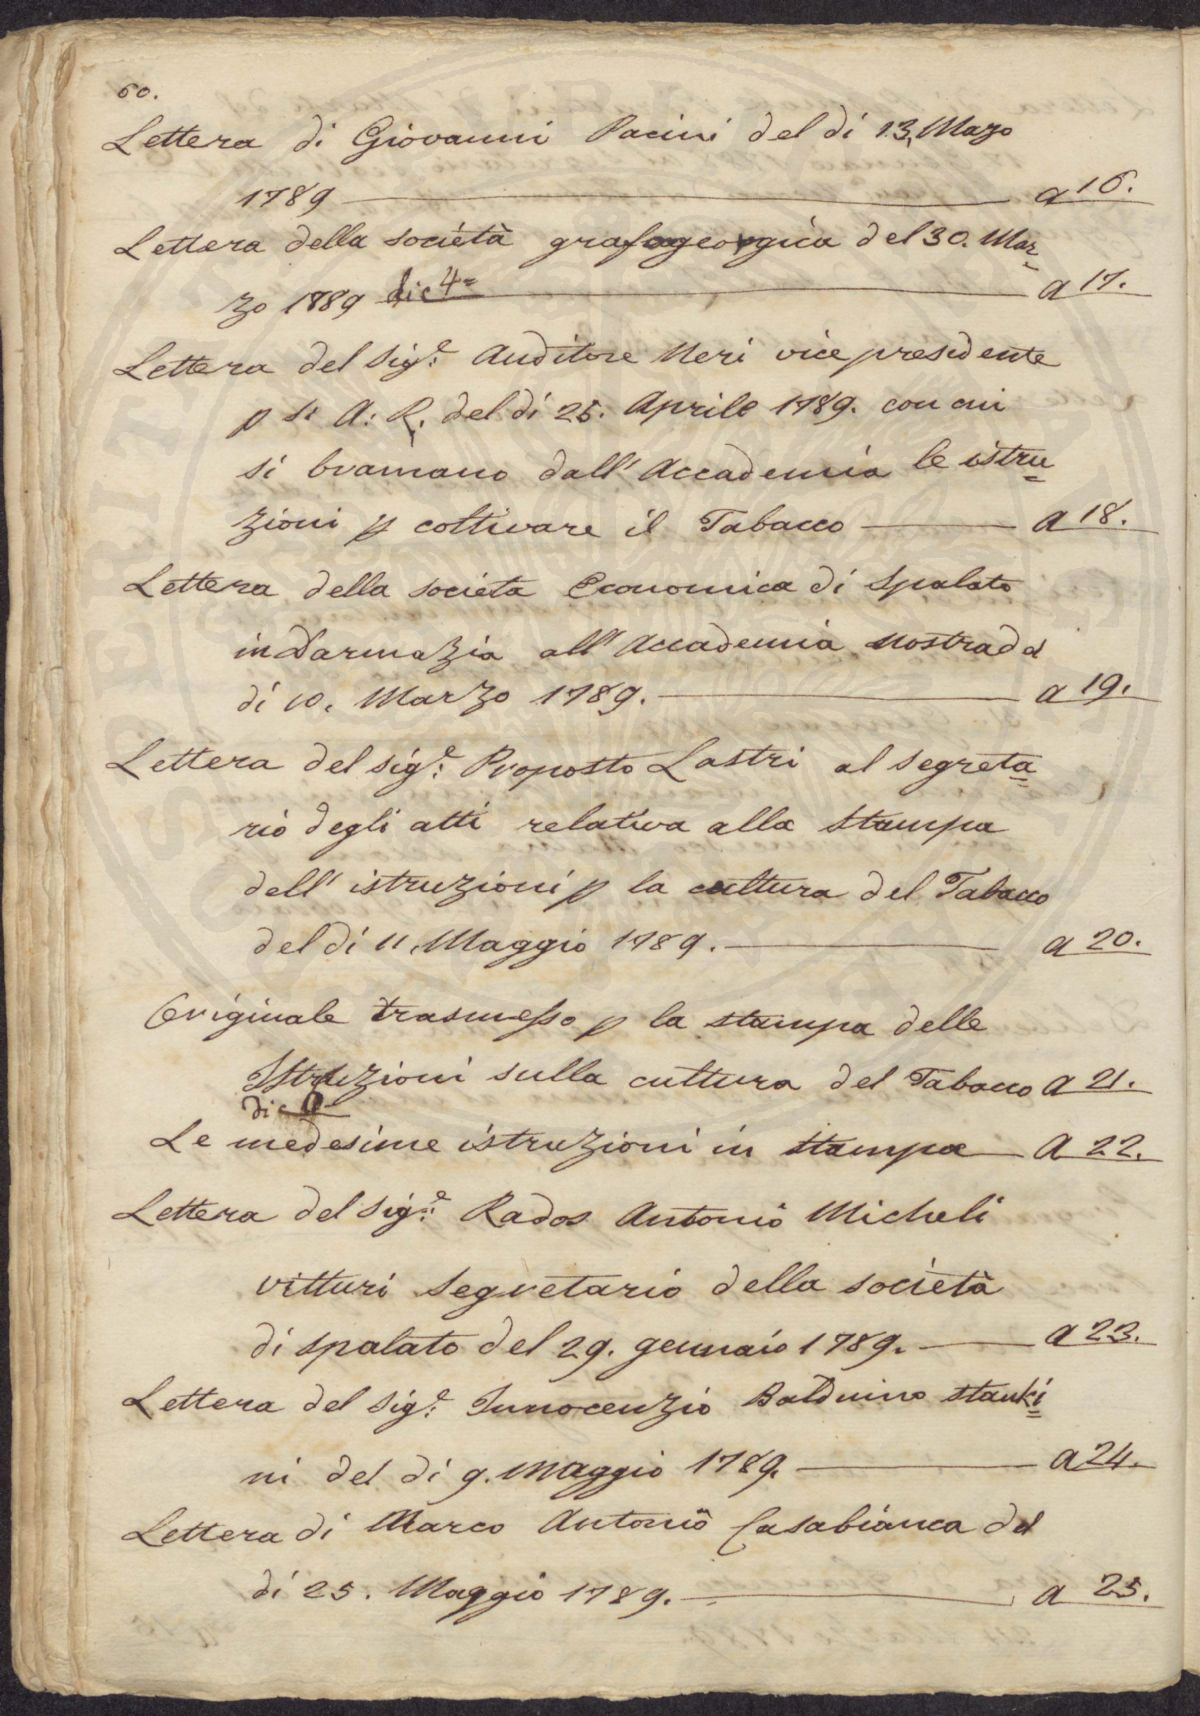 60.
Lettera di Giovanni Pacini del di 13, Mazo
1789 a 16.
Lettera della società grafogeorgica del 30. Mar=
zo 1789 dic 4= a 17.
Lettera del Sig.e Auditore Neri vice presidente
p S: A: R. del di 25. Aprile 1789. con cui
si bramano dall' Accademia le istru=
zioni p coltivare il Tabacco a 18.
Lettera della societa Economica di Spalato
in Darmazia all' Accademia nostra da
di 10. Marzo 1789. a 19.
Lettera del sig.e Proposto Lastri al segreta=
rio degli atti relativa alla stampa
dell' istruzioni p la cultura del Tabacco
del di 11. Maggio 1789. a 20.
Originale trasmesso p la stampa delle
Istruzioni sulla cultura del Tabacco a 21.
dic
Le medesime istruzioni in stampa a 22.
Lettera del Sig.e Rados Antonio Micheli
vitturi Segretario della società
di Spalato del 29. gennaio 1789. a 23.
Lettera del Sig.e Innocenzio Balduino Stanki=
ni del di 9. maggio 1789. a 24.
Lettera di Marco Antonio Casabianca del
di 25. Maggio 1789. a 25.